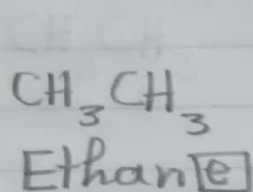 CH₃CH₃
Ethane